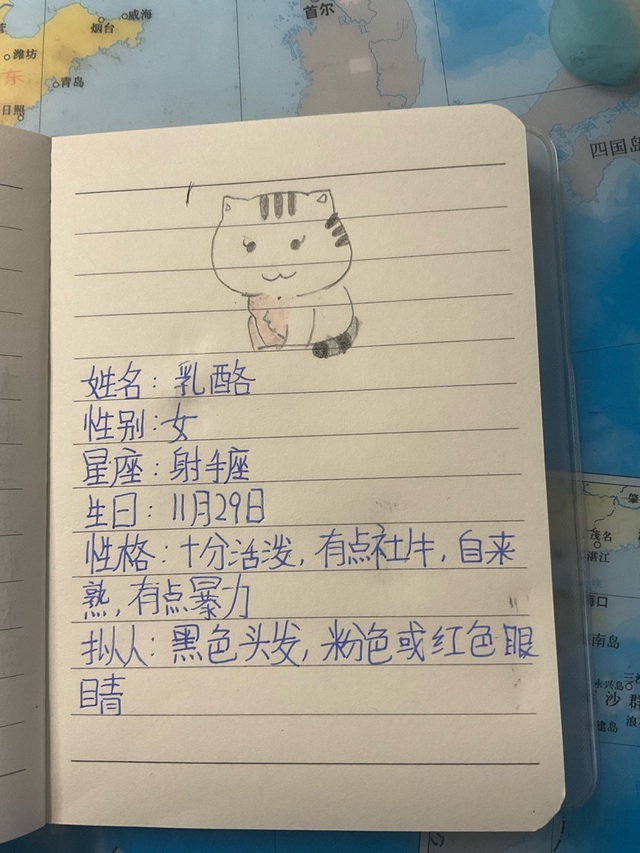 威海
烟台
潍坊
青岛
日照
首尔
四国岛
姓名：乳酪
性别：女
星座：射手座
生日：11月29日
性格：十分活泼，有点社牛，自来
熟，有点暴力
拟人：黑色头发，粉色或红色眼
睛
肇
茂名
湛江
海口
南岛
永兴岛
三沙
沙群
建岛